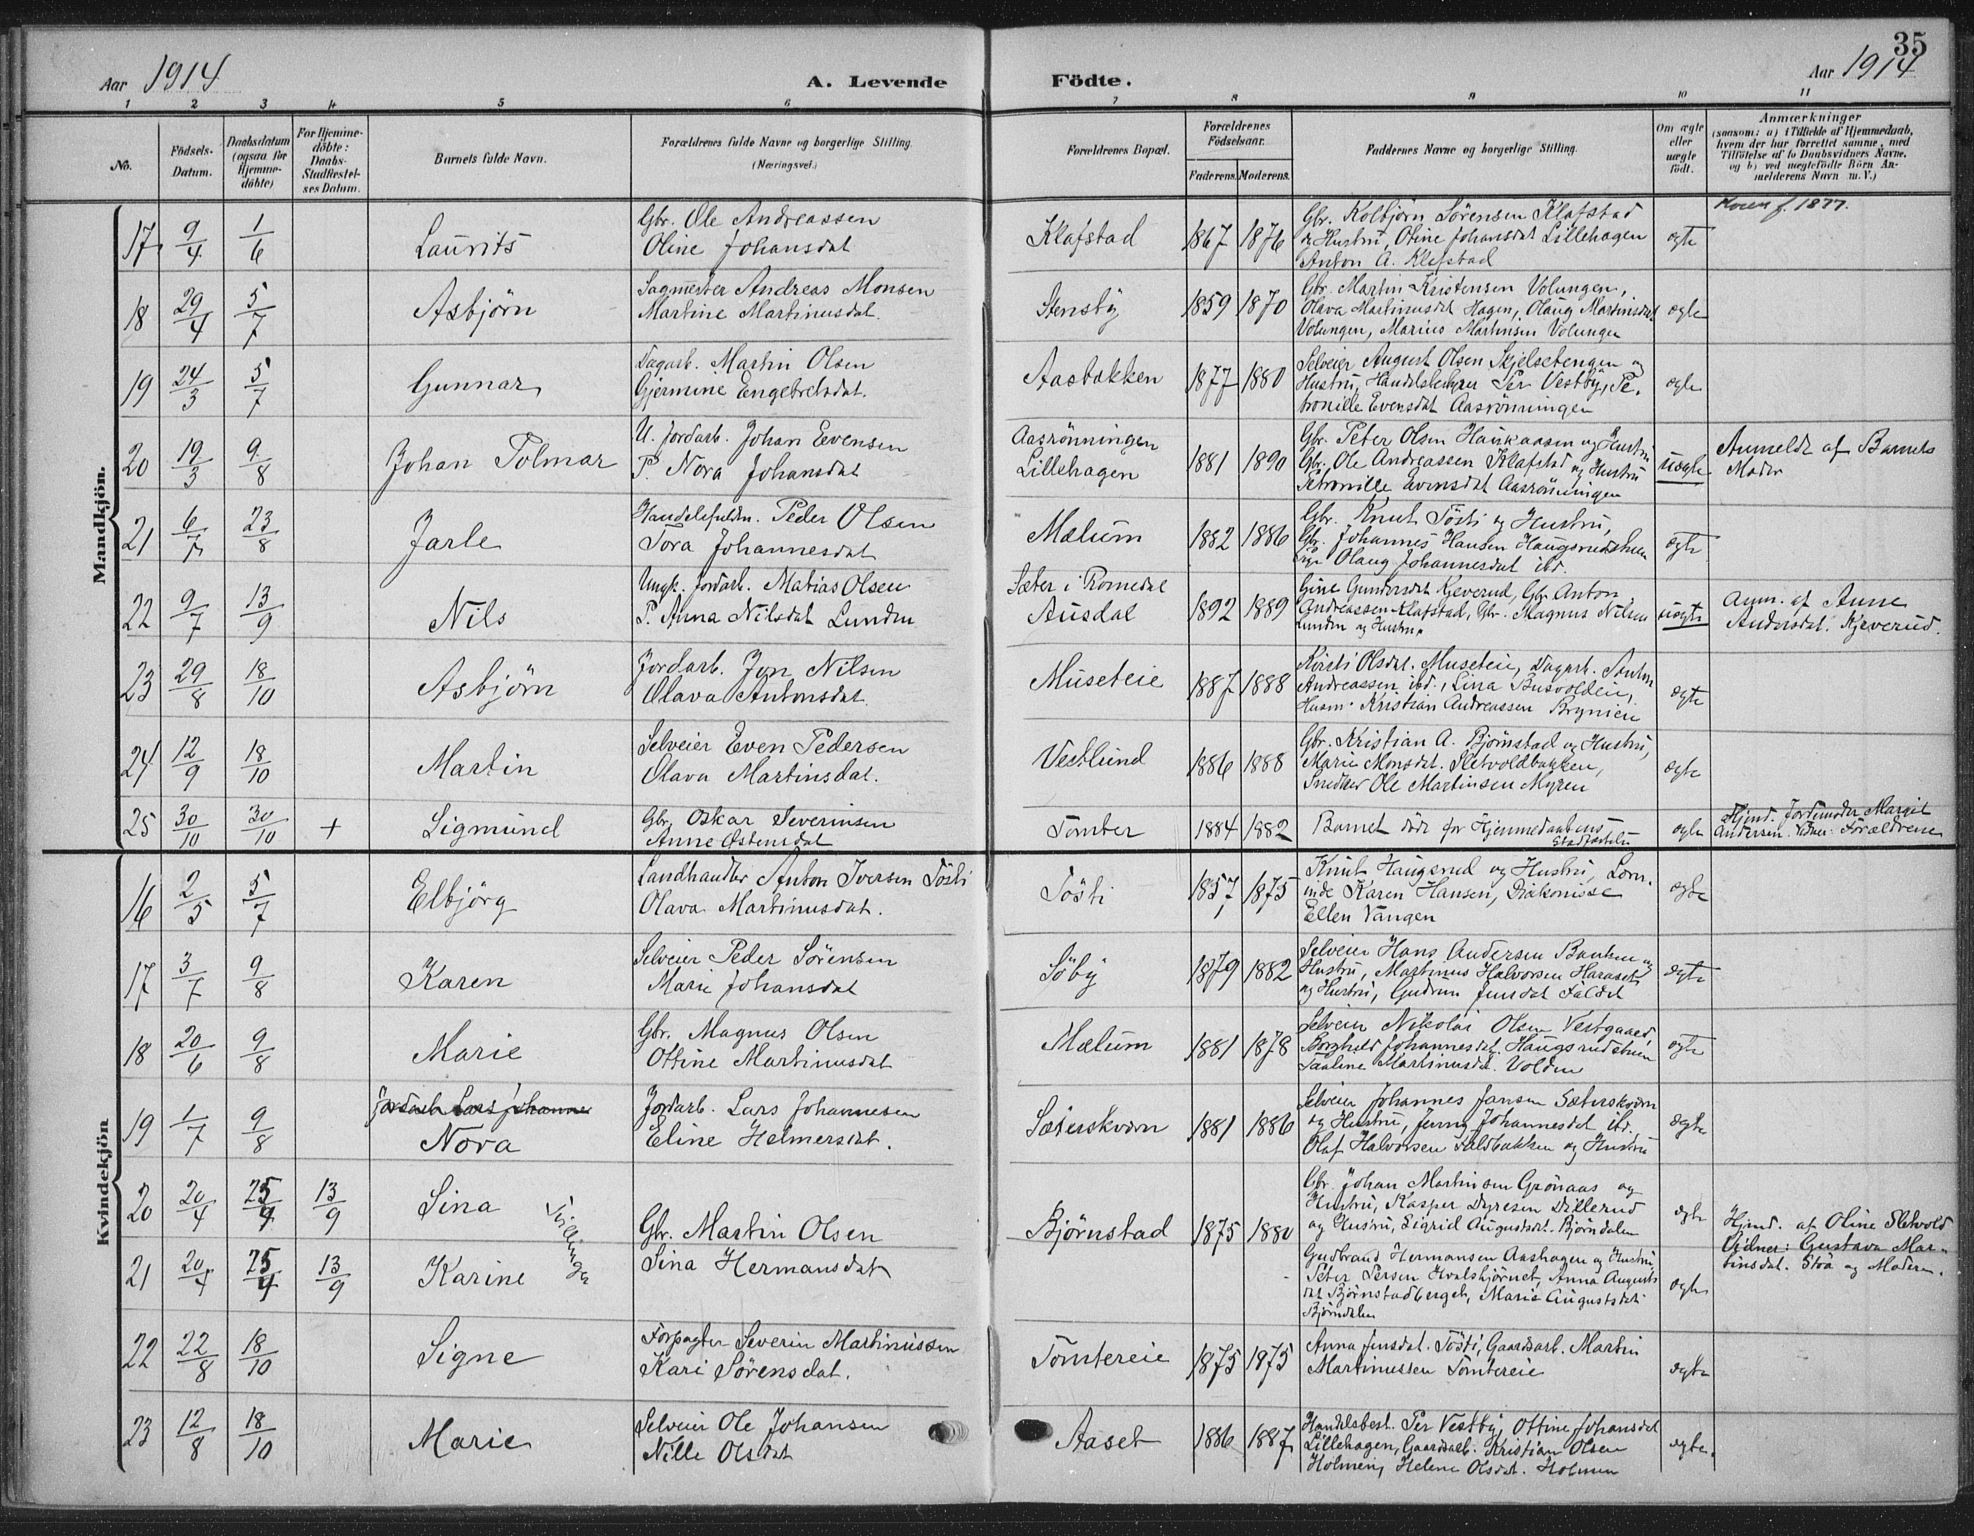 35
Aar 1914
A. Levende
Födte.
Aar 1914
1 2 3 4 5 6 7 8 9 10 11
No.
Födsels-
Datum.
Daabsdatum
(ogsaa for
Hjemme-
döbte)
For Hjemme-
döbte:
Daabs-
Stadfæstel-
ses Datum.
Barnets fulde Navn.
Forældrenes fulde Navne og borgerlige Stilling.
(Næringsvei.)
Forældrenes Bopæl.
Forældrenes
Födselsaar.
Faderens. Moderens.
Faddernes Navne og borgerlige Stilling.
Om ægte
eller
uægte
födt.
Anmærkninger
(saasom: a) i Tilfælde af Hjemmedaab,
hvem der har forrettet samme, med
Tilföielse af to Daabsvidners Navne,
og b) ved uægtefödte Börn An-
melderens Navn m. V.)
Mandkjön.
17 9/4 1/6 Laurits
Gbr. Ole Andreassen
Oline Johansdat
Klafstad 1867 1876
Gbr. Kolbjörn Sörensen Klafstad
og Hustru, Otine Johansdat Lillehagen
Anton A. Klafstad
egte
f. 1877.
18 29/4 5/7 Asbjörn
Sagmester Andreas Monsen
Martine Martinusdat.
Stensby 1859 1870
Gbr. Martin Kristensen Volungen,
Olava Martinusdat Hagen, Olaug Martinsdat
Volungen, Marius Martinsen Volungen
egte
19 24/3 5/7 Gunnar
Dagarb. Martin Olsen
Gjermine Engebretsdat.
Aasbakken 1877 1880
Selveier August Olsen Skjelsetengen og
Hustru, Per Vestby, Pe-
tronille Evensdat Aasrönningen
egte
20 19/3 9/8 Johan Tolmar
U. Jordarb. Johan Evensen
P. Nora Johansdat
Aasrönningen
Lillehagen
1881 1890
Gbr. Peter Olsen Haukaasen og Hustru
Gbr. Ole Andreassen Klafstad og Hustru
Petronille Evensdat Aasrönningen
uegte
Anmeldt af Barnets
Moder
21 6/7 23/8 Jarle
Handelsfuldm. Peder Olsen
Tora Johannesdat
Mælum 1882 1886
Gbr. Knut Tösti og Hustru,
Gbr. Johannes Hansen Haugsrudstuen
Pige Olaug Johannesdat ibd.
egte
22 9/7 13/9 Nils
Ungk. Jordarb. Matias Olsen
P. Anna Nilsdat Lunden
Sæter i Romedal
Ausdal
1892 1889
Gine Gundersdat Kjeverud, Gbr. Anton
Andreassen Klafstad, Gbr. Magnus Nilsen
Lunden og Hustru
uegte
Anm. af Anne
Andersdat. Kjeverud.
23 29/8 18/10 Asbjörn
Jordarb. Jon Nilsen
Olava Antonsdat
Museteie 1887 1888
Kirsti Olsdat. Museteie, Dagarb. Anton
Andreassen ibd., Lina Busvoldeie,
Husm. Kristian Andreassen Brynieie
egte
24 12/9 18/10 Martin
Selveier Even Pedersen
Olava Martinsdat.
Vestlund 1886 1888
Gbr. Kristian A. Björnstad og Hustru,
Marie Monsdat. Sletvoldbakken,
Snedker Ole Martinsen Myren
egte
25 30/10 30/10 + Sigmund
Gbr. Oskar Severinsen
Anne Østensdat
Tomter 1884 1882
Barnet döde för Hjemmedaabens
Stadfæstelse
egte
Hjmd. Jordmoder Margit
Andersen. Vidner: Forældrene
Kvindekjön
16 2/5 5/7 Elbjörg
Landhandler Anton Iversen Tösti
Olava Martinusdat.
Tösti 1857 1875
Knut Haugsrud og Hustru, Lær-
inde Karen Hansen, Diakonisse
Ellen Vangen
egte
17 3/7 9/8 Karen
Selveier Peder Sörensen
Marie Johansdat
Söby 1879 1882
Selveier Hans Andersen Banken og
Hustru, Martinus Halvorsen Haraset
og Hustru, Gudrun Jensdat Faldet
egte
18 20/6 9/8 Marie
Gbr. Magnus Olsen
Ottine Martinusdat
Mælum 1881 1878
Selveier Nikolai Olsen Vestgaard,
Borghild Johannesdat. Haugsrudstuen
Pauline Martinusdat. Volden
egte
19 1/7 9/8
Jordarb Lars Johannes
Nora
Jordarb. Lars Johannesen
Eline Helmersdat.
Sæterskværn 1881 1886
Selveier Johannes Jansen Sæterskværn
og Hustru, Jenny Johannesdat ibd.
Olaf Halvorsen Faldbakken og Hustru
egte
20 20/4 25/4 13/9 Sina
Tvillinge
Gbr. Martin Olsen
Sina Hermansdat
Björnstad 1875 1880
Gbr. Johan Martinsen Grönaas og
Hustru, Kasper Dyresen Dillerud
og Hustru, Sigrid Augustsdat. Björndalen
egte
Hjmd. af Oline Sletvold
Vidner: Gustava Mar-
tinsdat. Stöa og Moderen.
21 20/4 25/4 13/9 Karine
Gudbrand Hermansen Aashagen og Hustru
Peter Persen Kvalsbjörnet, Anna Augusts-
dat Björnstadberget, Marie Augustsdat
Björndalen
egte
22 22/8 18/10 Signe
Forpagter Severin Martinussen
Kari Sörensdat.
Tomtereie 1875 1875
Anna Jensdat. Tösti, Gaardsarb. Martin
Martinussen Tomtereie
egte
23 12/8 18/10 Marie
Selveier Ole Johansen
Nille Olsdat
Aaset 1886 1887
Handelsbest. Per Vestby, Ottine Johansdat
Lillehagen, Gaardsarb. Kristian Olsen
Holmen, Helene Olsdat. Holmen
egte.